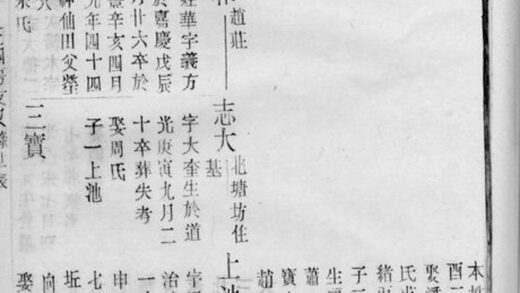 趙莊
華字義方
於嘉慶戊辰
月廿六卒於
豐辛亥四月
年四十四
神仙田父塋
氏
北塘坊住
志大
基
字大奎生於道
光庚寅九月二
十卒葬失考
娶周氏
子一上池
三寶
本姓
酉二
娶
氏
緒
子一
生
蕭
寶
趙
上池
治
一
申
七
坵
向
娶